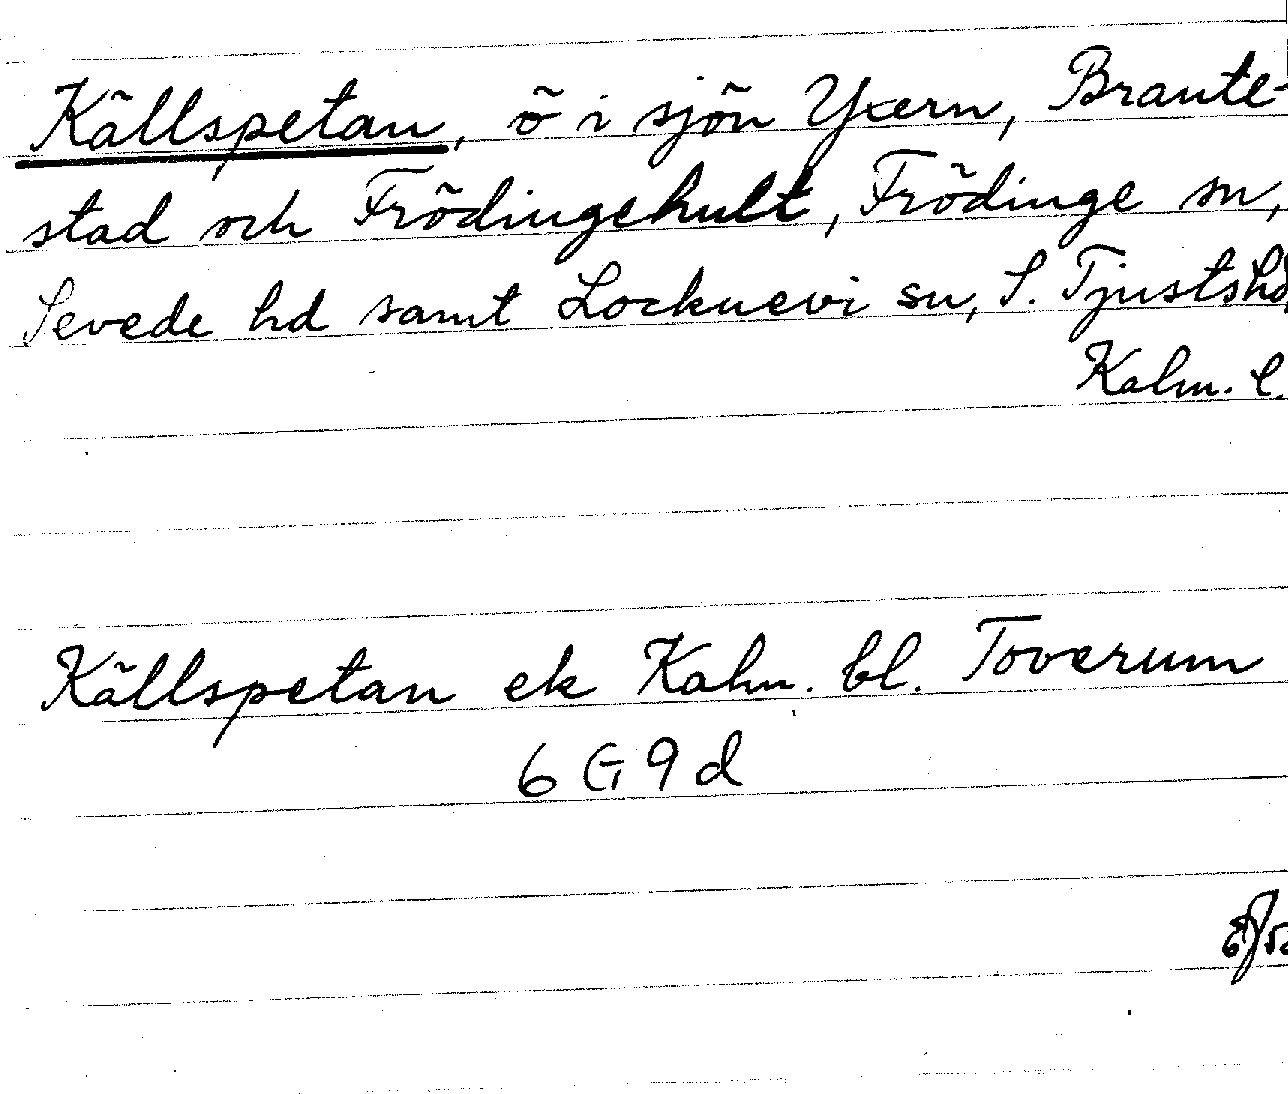 Källspetan, ö i sjön Yxern, Brante-
stad och Frödingehult, Frödinge sn,
Sevede hd samt Locknevi sn, S. Tjusts hd
Kalm. l.
Källspetan ek Kalm. bl. Toverum
6 G 9 d